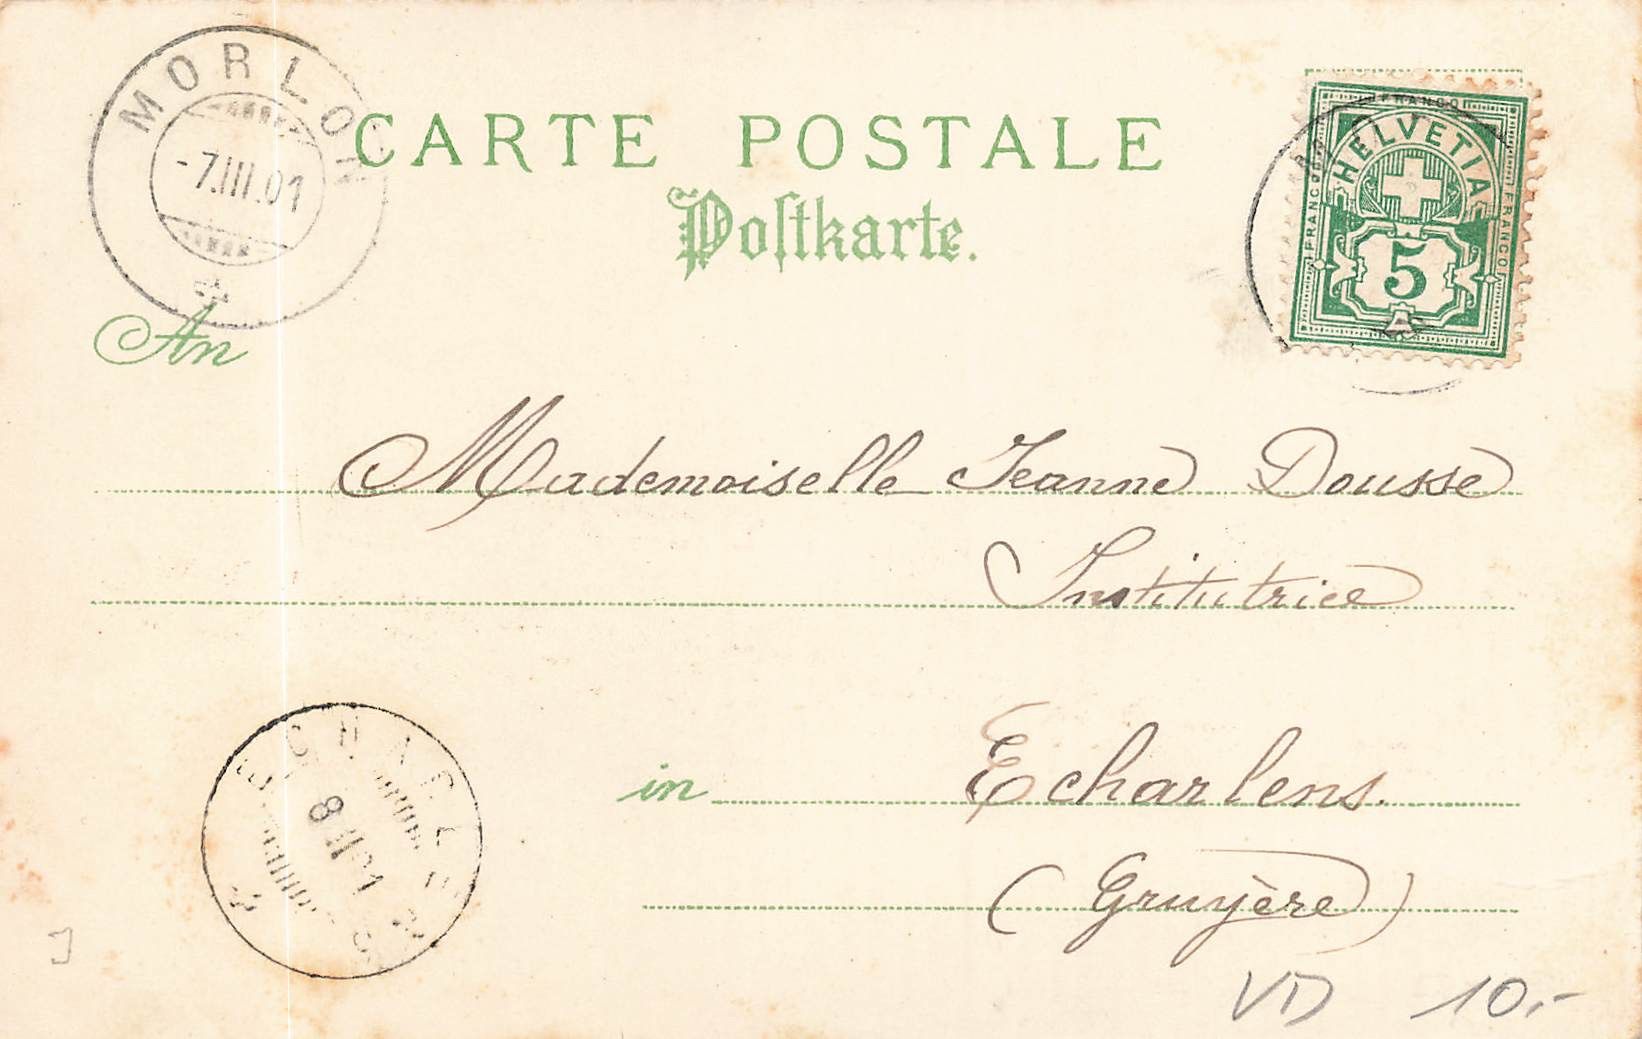 MORLON
-7.III.01
CARTE POSTALE
Postkarte.
FRANCO
HELVETIA
FRANCO
FRANCO
5
An
Mademoiselle Jeanne Dousse
Institutrice
in Echarlens.
(Gruyère)
ECHARLENS
8 III 01
VD 10.-